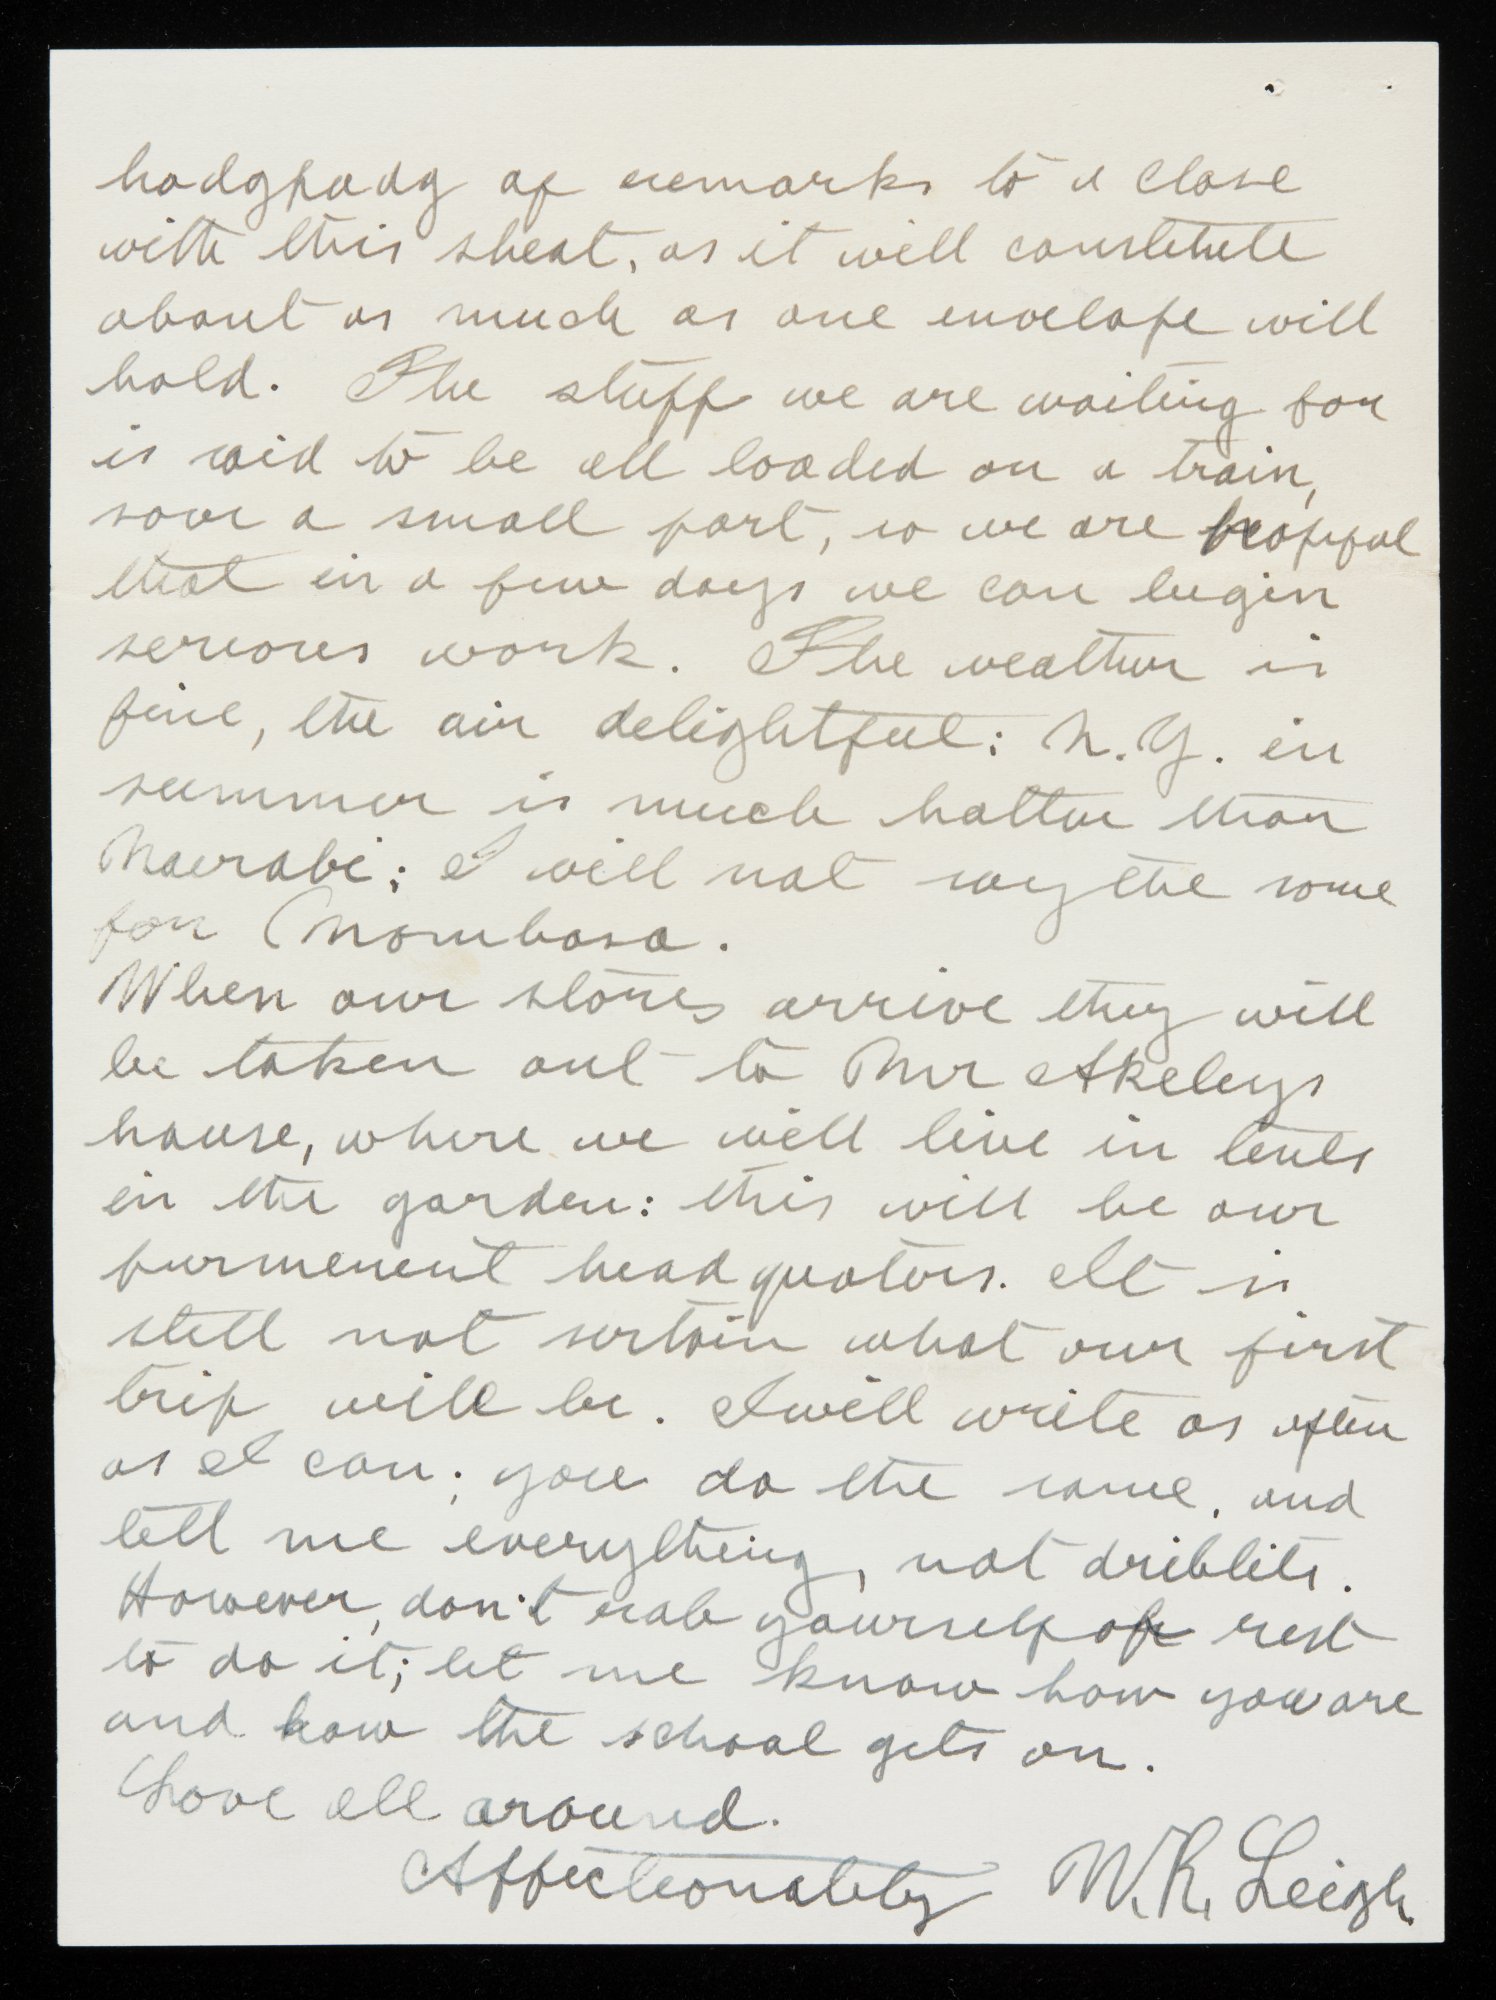 hodgpodg of remarks to a close
with this sheat, as it will constitute
about as much as one envelope will
hold. The stuff we are waiting for
is said to be all loaded on a train,
save a small part, so we are hopeful
that in a few days we can begin
serious work. The weather is
fine, the air delightful; N.Y. in
summer is much hotter than
Nairobi; I will not say the same
for Mombasa.
When our stores arrive they will
be taken out to Mr Akeleys
house, where we will live in tents
in the garden: this will be our
purmenent head quaters. It is
still not sertain what our first
trip will be. I will write as often
as I can; you do the same, and
tell me everything, not driblits.
However, don't rob yourself of rest
to do it; let me know how you are
and how the school gets on.
Love all around.
Affectionately W.R. Leigh.